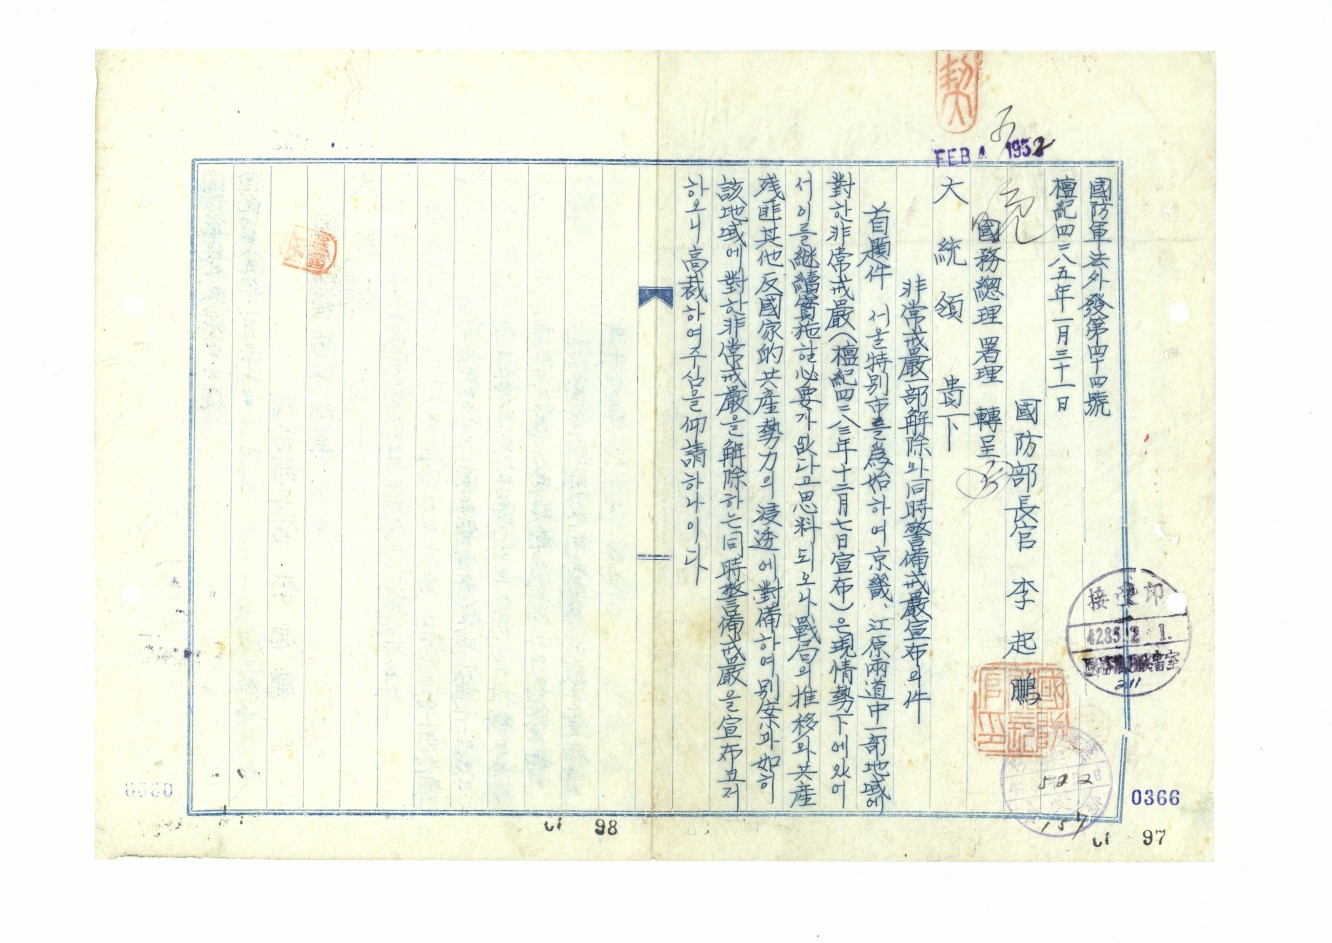 國防軍法外發第四十四號
檀紀四二八五年一月三十一日
國防部長官 李起鵬
國務總理署理 轉呈
大統領 貴下
非常戒嚴一部解除와同時警備戒嚴宣布의件
首題件 서울特別市를爲始하여京畿、江原兩道中一部地域에
對한非常戒嚴(檀紀四二八三年十二月七日宣布)은現情勢下에있어
서이를継續實施할必要가없다고思料되오나戰局의推移와共産
残匪其他反國家的共産勢力의浸透에對備하여別案과如히
該地域에對한非常戒嚴을解除하는同時警備戒嚴을宣布코저
하오니高裁하여주심을仰請하나이다
契
FEB 1952
接受印
4285. 2. 1.
211
522
157
0366
97
98